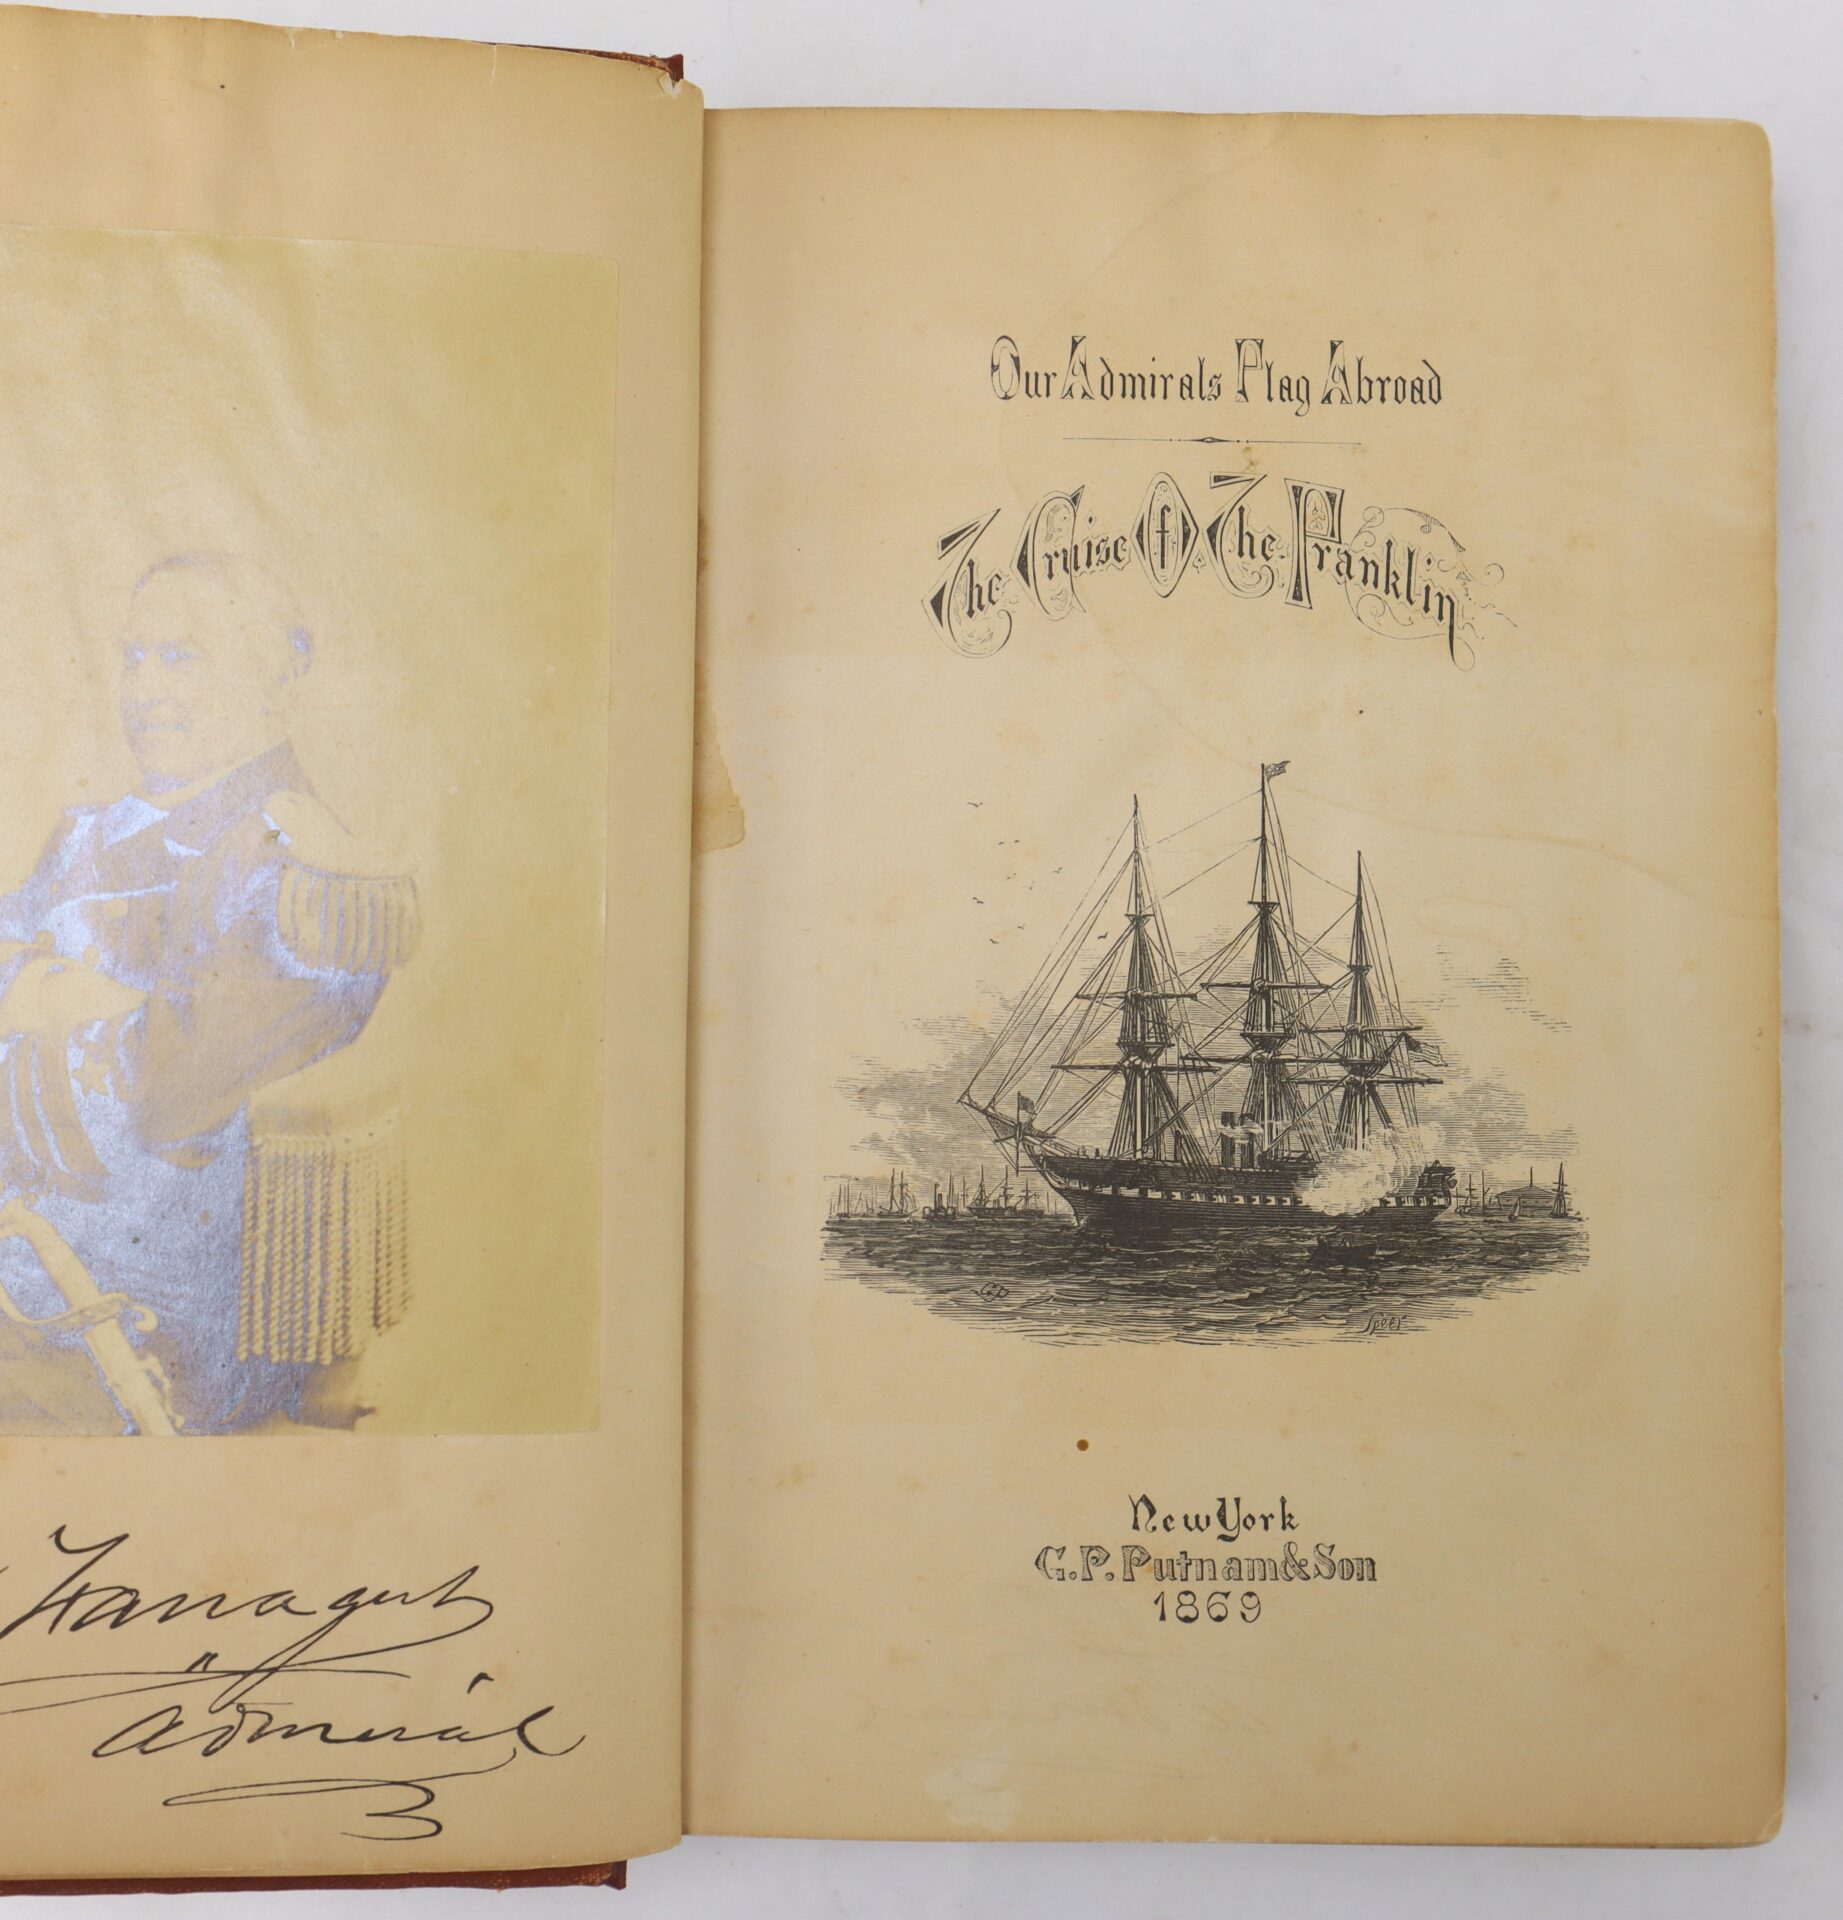 Farragut
Admiral
Our Admirals Flag Abroad
The Cruise Of The Franklin
GP
Speer
New York
G.P. Putnam & Son
1869